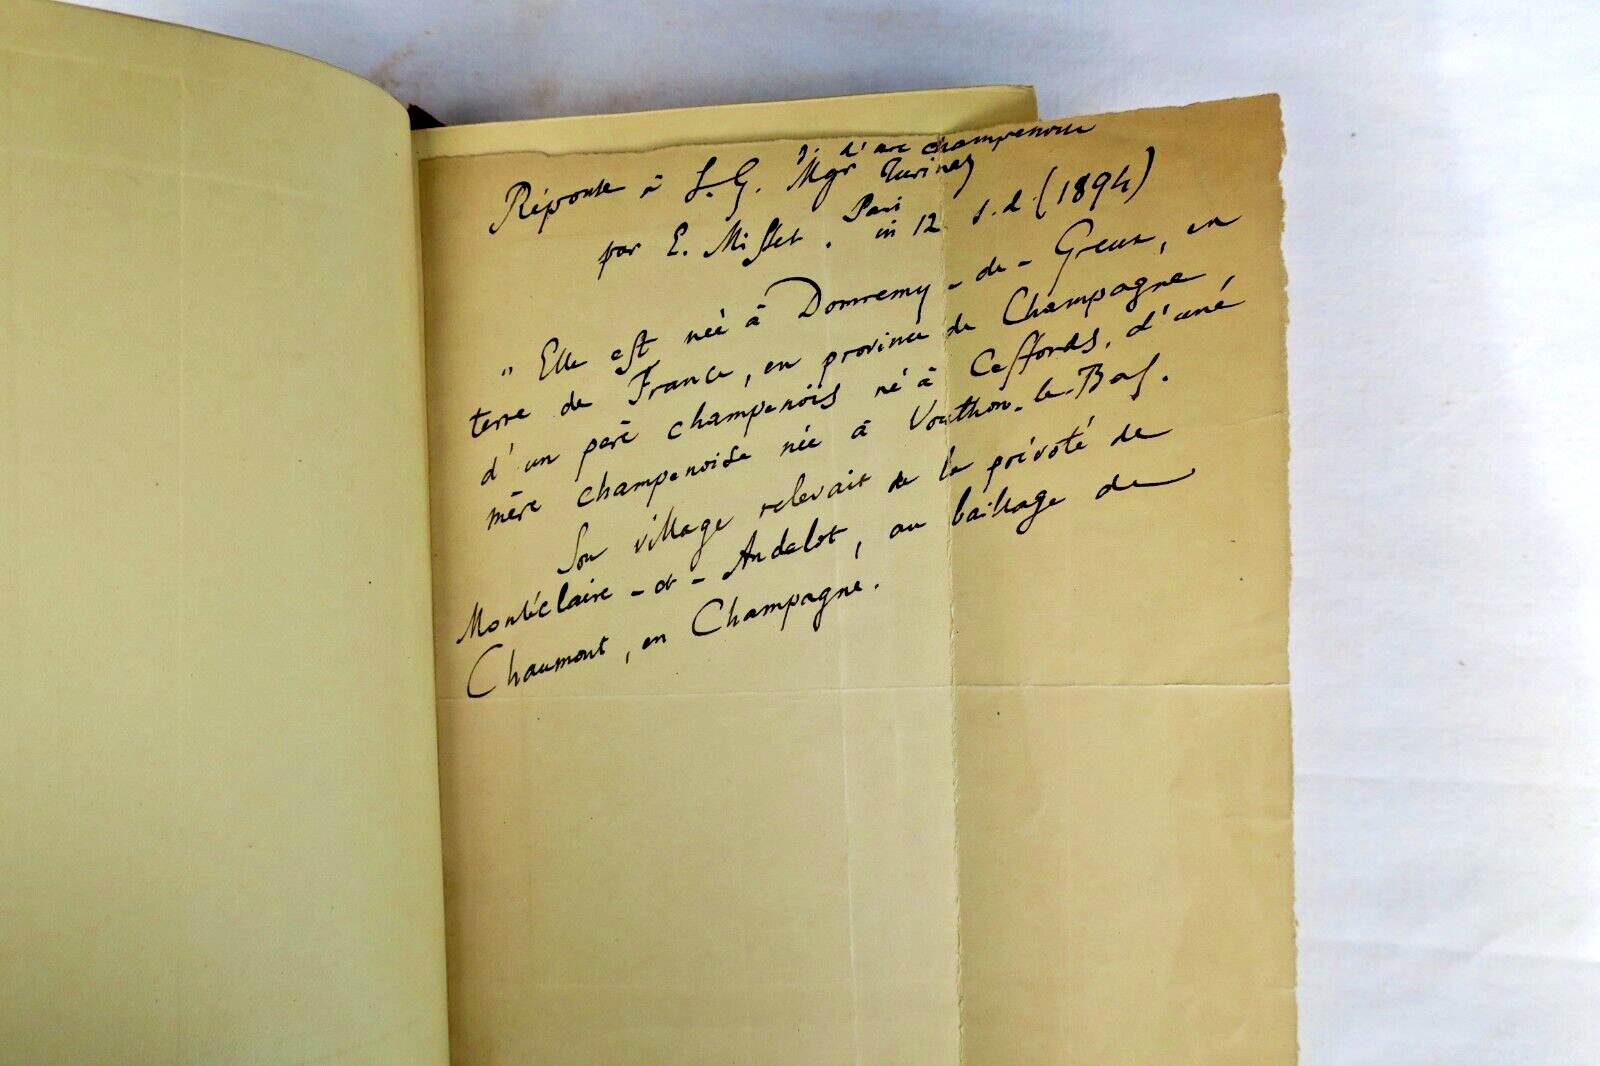 J. d'arc champenoise
Réponse à S. G. Mgr Turinaz
par E. Misset. Paris in 12 s. d. (1894)
" Elle est née à Domremy - de - Greux, en
terre de France, en province de Champagne,
d'un père champenois né à Ceffonds, d'une
mère champenoise née à Vouthon-le-Bas.
Son village relevait de la prévôté de
Montéclaire - et - Andelot, au bailliage de
Chaumont, en Champagne.